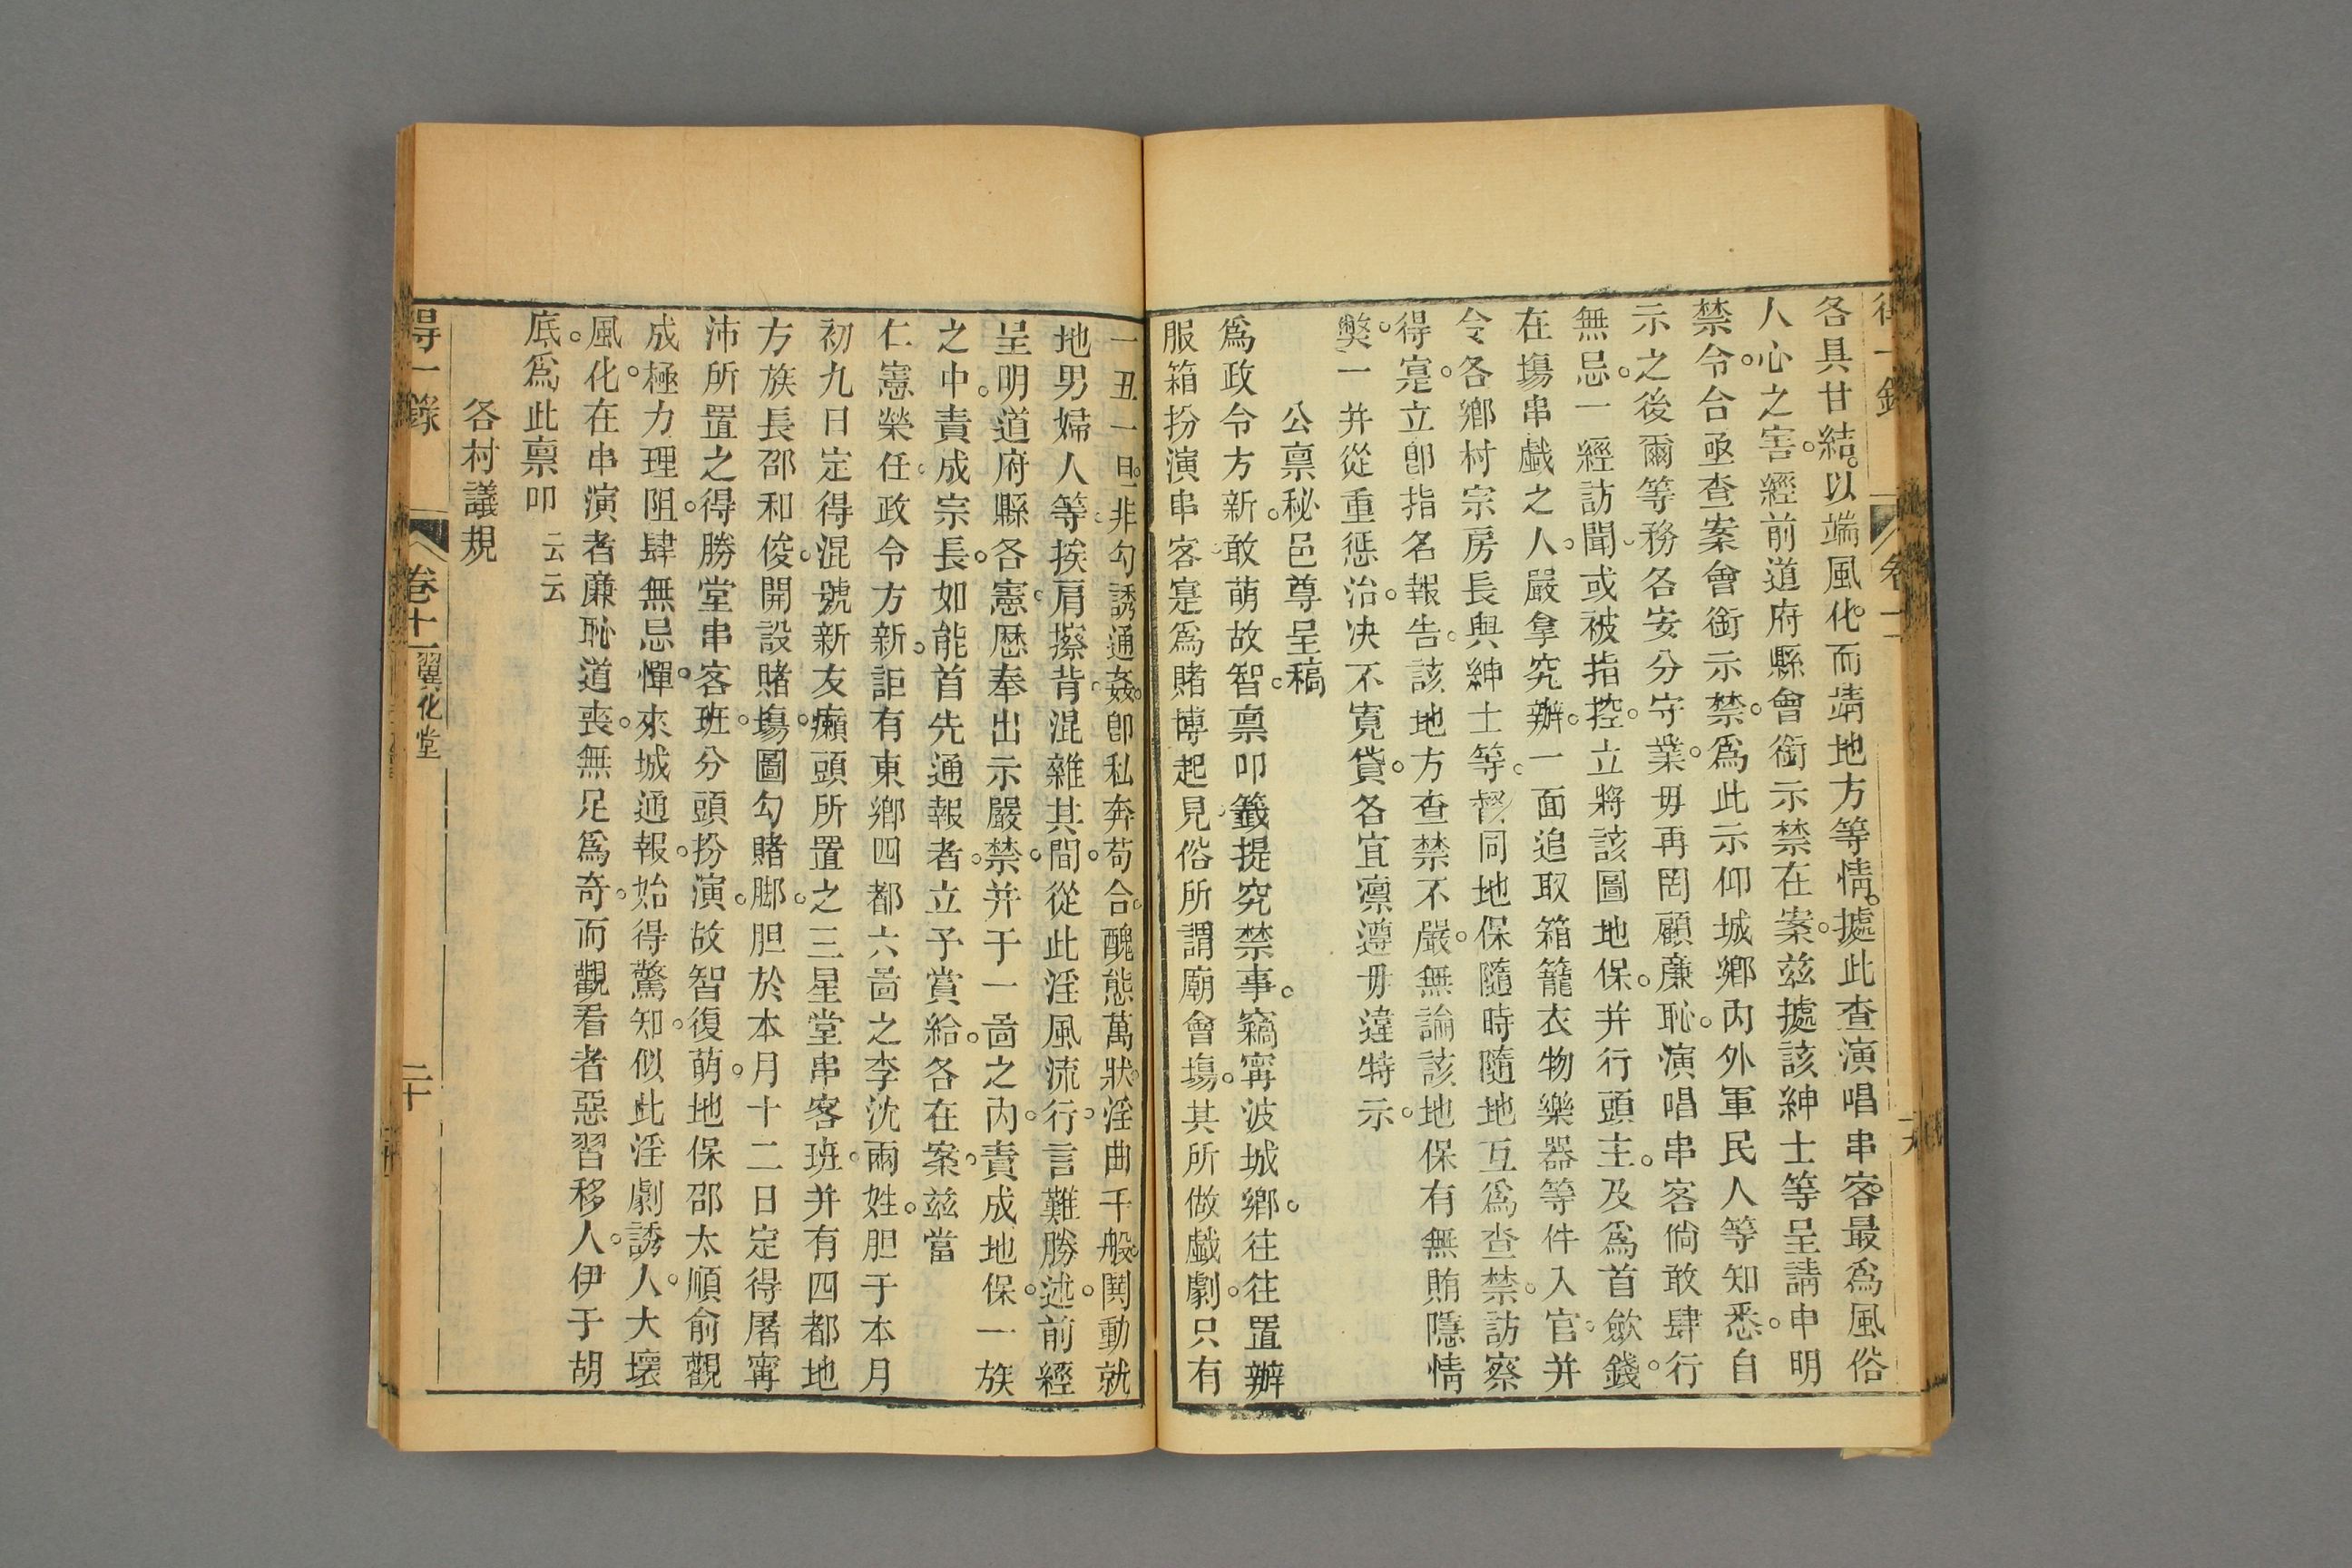 得一錄 卷十一 十九
各具甘結。以端風化。而靖地方等情。據此查演唱串客。最爲風俗
人心之害。經前道府縣會銜示禁在案。茲據該紳士等呈請申明
禁令。合亟查案會銜示禁。爲此示仰城鄉內外軍民人等知悉。自
示之後。爾等務各安分守業。毋再罔顧廉恥。演唱串客。倘敢肆行
無忌。一經訪聞。或被指控。立將該圖地保。并行頭主。及爲首歛錢。
在塲串戲之人。嚴拿究辦。一面追取箱籠衣物樂器等件入官。并
令各鄉村宗房長與紳士等。督同地保隨時隨地互爲查禁。訪察
得寔。立卽指名報告。該地方查禁不嚴。無論該地保有無賄隱情
獘。一并從重惩治。决不寬貸。各宜凛遵毋違特示。
公禀秘邑尊呈稿
爲政令方新。敢萌故智。禀叩籤提究禁事。竊寗波城鄉。往往置辦
服箱扮演串客。寔爲賭博起見。俗所謂廟會塲。其所做戲劇。只有
一丑一旦。非勾誘通姦。卽私奔苟合。醜態萬狀。淫曲千般。鬨動就
地男婦人等。挨肩擦背。混雜其間。從此淫風流行。言難勝述。前經
呈明道府縣各憲。歴奉出示嚴禁。并于一啚之內。責成地保。一族
之中。責成宗長。如能首先通報者。立予賞給。各在案。茲當
仁憲榮任。政令方新。詎有東鄉四都六啚之李沈兩姓。胆于本月
初九日定得混號新友癩頭所置之三星堂串客班。并有四都地
方族長邵和俊。開設賭塲。圖勾賭脚。胆於本月十二日定得屠寗
沛所置之得勝堂串客班。分頭扮演。故智復萌。地保邵太順俞觀
成極力理阻。肆無忌憚。來城通報。始得驚知。似此淫劇誘人。大壞
風化。在串演者廉恥道喪。無足爲奇。而觀看者惡習移人。伊于胡
底。爲此禀叩 云云
各村議規
得一錄 卷十一 翼化堂 二十